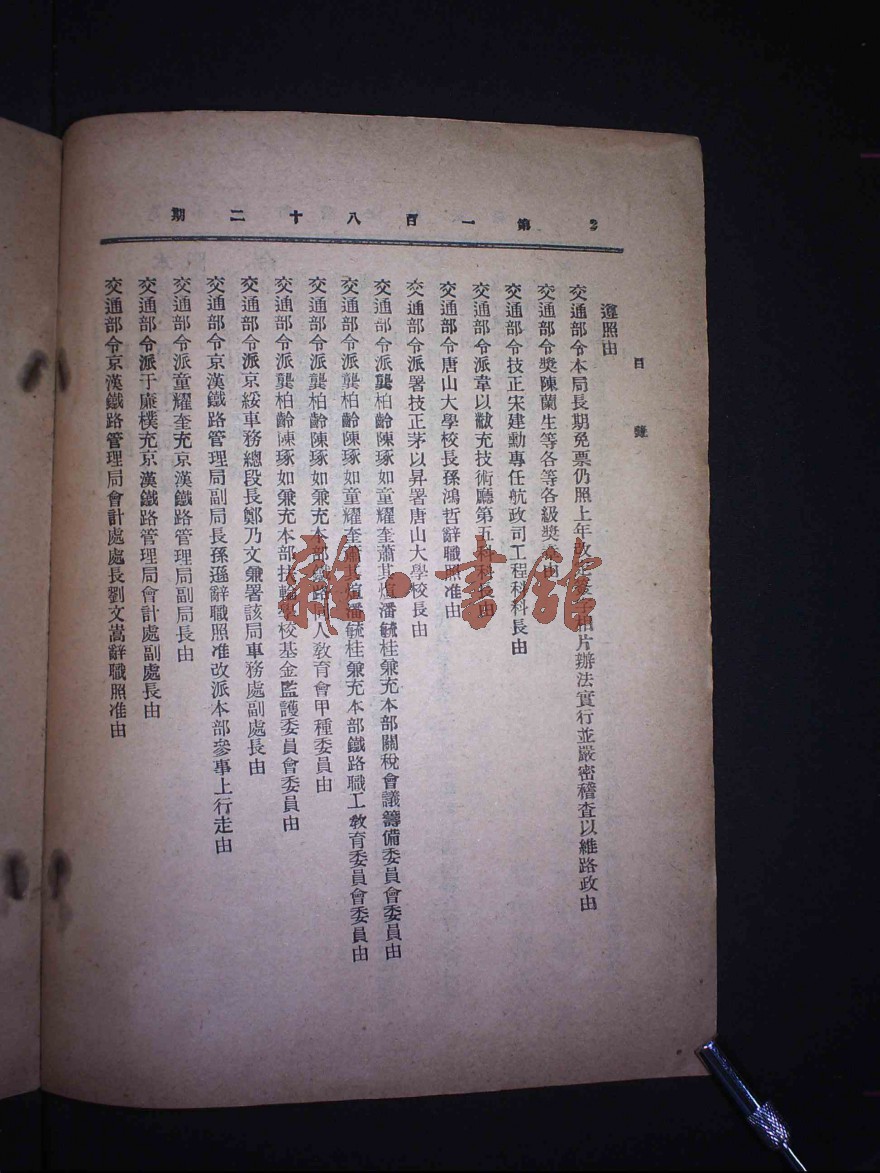 2 第一百八十二期
目錄
遵照由
交通部令本局長期免票仍照上年改 相片辦法實行並嚴密稽查以維路政由
交通部令獎陳蘭生等各等各級獎 由
交通部令技正宋建勳專任航政司工程科科長由
交通部令派韋以黻充技術廳第五科科長由
交通部令唐山大學校長孫鴻哲辭職照准由
交通部令派署技正茅以昇署唐山大學校長由
交通部令派龔柏齡陳琢如童耀奎蕭其煊潘毓桂兼充本部關稅會議籌備委員會委員由
交通部令派龔柏齡陳琢如童耀奎蕭其煊潘毓桂兼充本部鐵路職工教育委員會委員由
交通部令派龔柏齡陳琢如兼充本部鐵路同人教育會甲種委員由
交通部令派龔柏齡陳琢如兼充本部扶輪學校基金監護委員會委員由
交通部令派京綏車務總段長鄭乃文兼署該局車務處副處長由
交通部令京漢鐵路管理局副局長孫遜辭職照准改派本部參事上行走由
交通部令派童耀奎充京漢鐵路管理局副局長由
交通部令派于廉樸充京漢鐵路管理局會計處副處長由
交通部令京漢鐵路管理局會計處處長劉文嵩辭職照准由
雜·書館